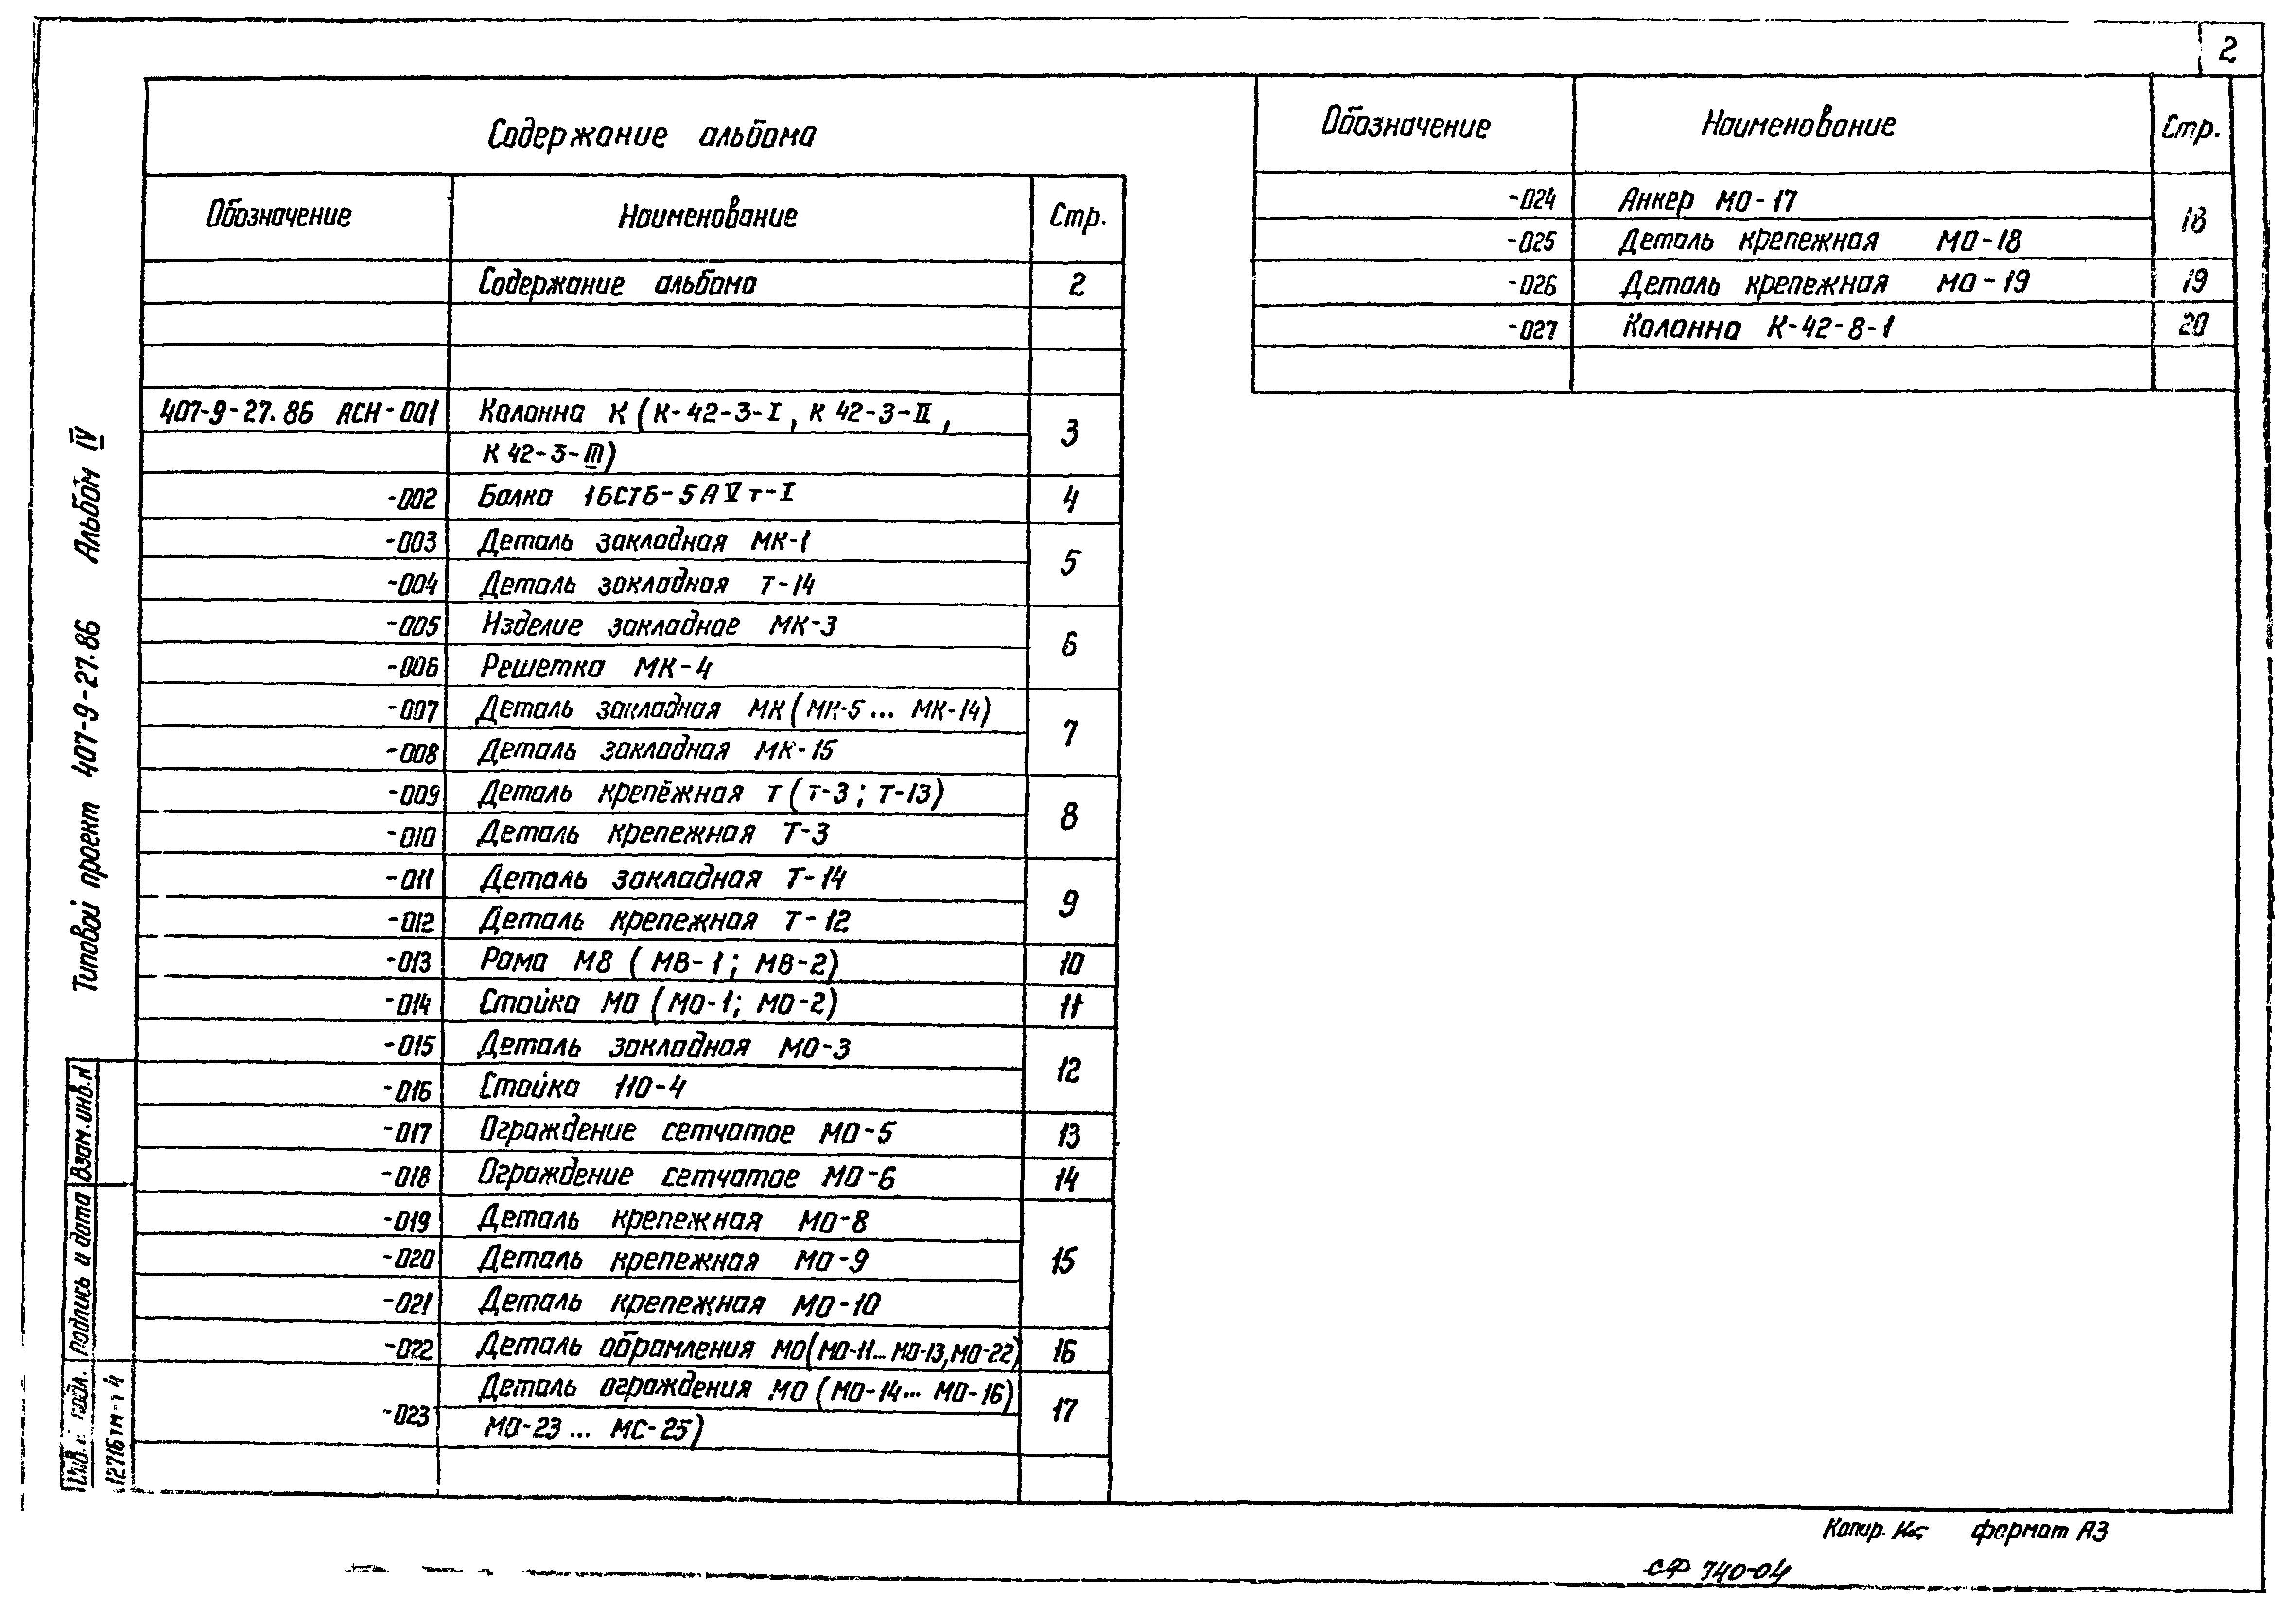 2
Содержание альбома
Обозначение Наименование Стр.
Содержание альбома 2
407-9-27.86 АСН-001 Колонна К (К-42-3-I, К 42-3-II, 3
К 42-3-III)
-002 Балка 1БСТ6-5АVт-I 4
-003 Деталь закладная МК-1 5
-004 Деталь закладная Т-14
-005 Изделие закладное МК-3 6
-006 Решетка МК-4
-007 Деталь закладная МК (МК-5... МК-14) 7
-008 Деталь закладная МК-15
-009 Деталь крепёжная Т (Т-3; Т-13) 8
-010 Деталь крепежная Т-3
-011 Деталь закладная Т-14 9
-012 Деталь крепежная Т-12
-013 Рама М8 (МВ-1; МВ-2) 10
-014 Стойка МО (МО-1; МО-2) 11
-015 Деталь закладная МО-3 12
-016 Стойка 110-4
-017 Ограждение сетчатое МО-5 13
-018 Ограждение сетчатое МО-6 14
-019 Деталь крепежная МО-8 15
-020 Деталь крепежная МО-9
-021 Деталь крепежная МО-10
-022 Деталь обрамления МО(МО-11... МО-13,МО-22) 16
-023 Деталь ограждения МО (МО-14... МО-16) 17
МО-23... МС-25)
Обозначение Наименование Стр.
-024 Анкер МО-17 18
-025 Деталь крепежная МО-18
-026 Деталь крепежная МО-19 19
-027 Колонна К-42-8-1 20
Типовой проект 407-9-27.86 Альбом IV
Взам.инв.N
Подпись и дата
Инв. подл.
12716тм-т4
Копир. формат А3
СФ 740-04